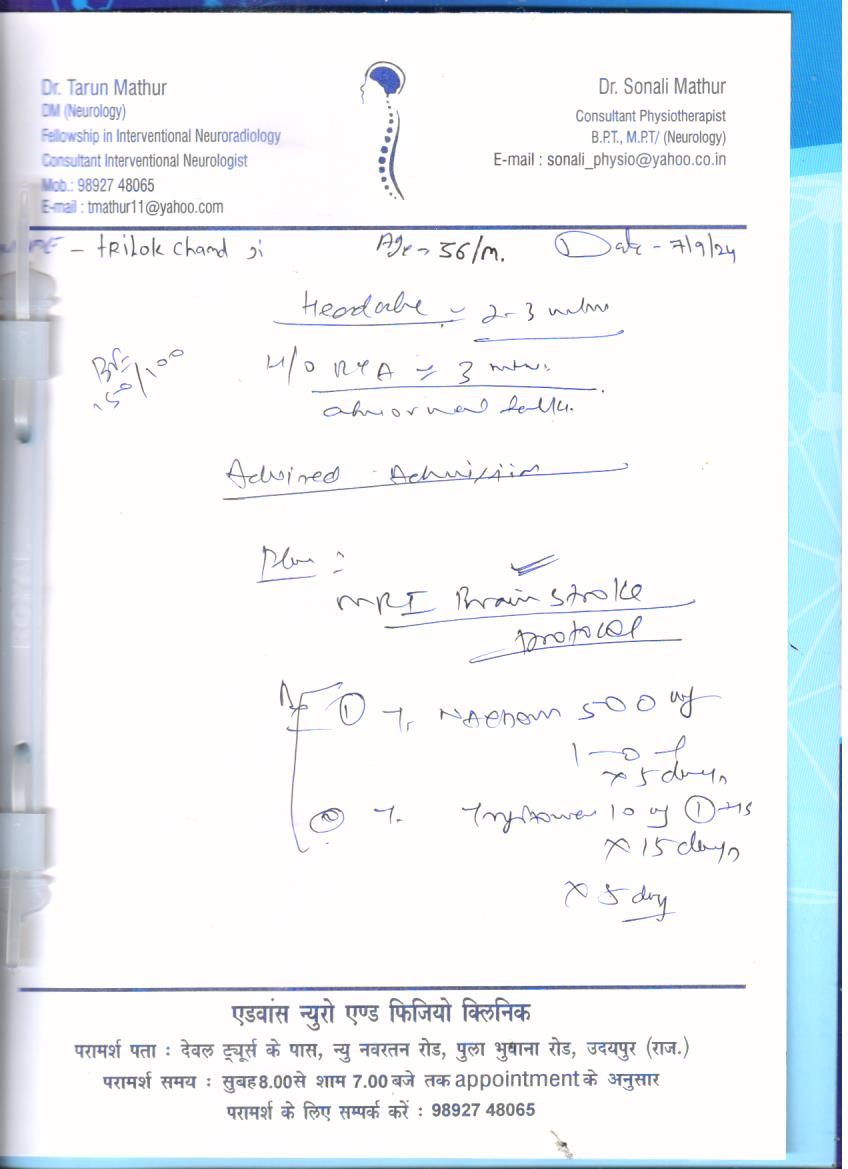 Dr. Tarun Mathur
DM (Neurology)
Fellowship in Interventional Neuroradiology
Consultant Interventional Neurologist
Mob.: 98927 48065
E-mail : tmathur11@yahoo.com
Dr. Sonali Mathur
Consultant Physiotherapist
B.P.T., M.P.T/ (Neurology)
E-mail : sonali_physio@yahoo.co.in
- trilok chand ji Age - 56/M. Date - 7/9/24
Headache - 2-3 mths
BP-
150/100
H/O RTA - 3 mths.
abnormal
Advised Admission
Plan :
MRI Brain stroke
protocol
Rx ① T. 500 mg
1-0-1
x 5 days
② T. 10 mg ① HS
x 15 days
x 5 day
एडवांस न्युरो एण्ड फिजियो क्लिनिक
परामर्श पता : देवल ट्यूर्स के पास, न्यु नवरतन रोड, पुला भुवाना रोड, उदयपुर (राज.)
परामर्श समय : सुबह 8.00 से शाम 7.00 बजे तक appointment के अनुसार
परामर्श के लिए सम्पर्क करें : 98927 48065
ROYAL